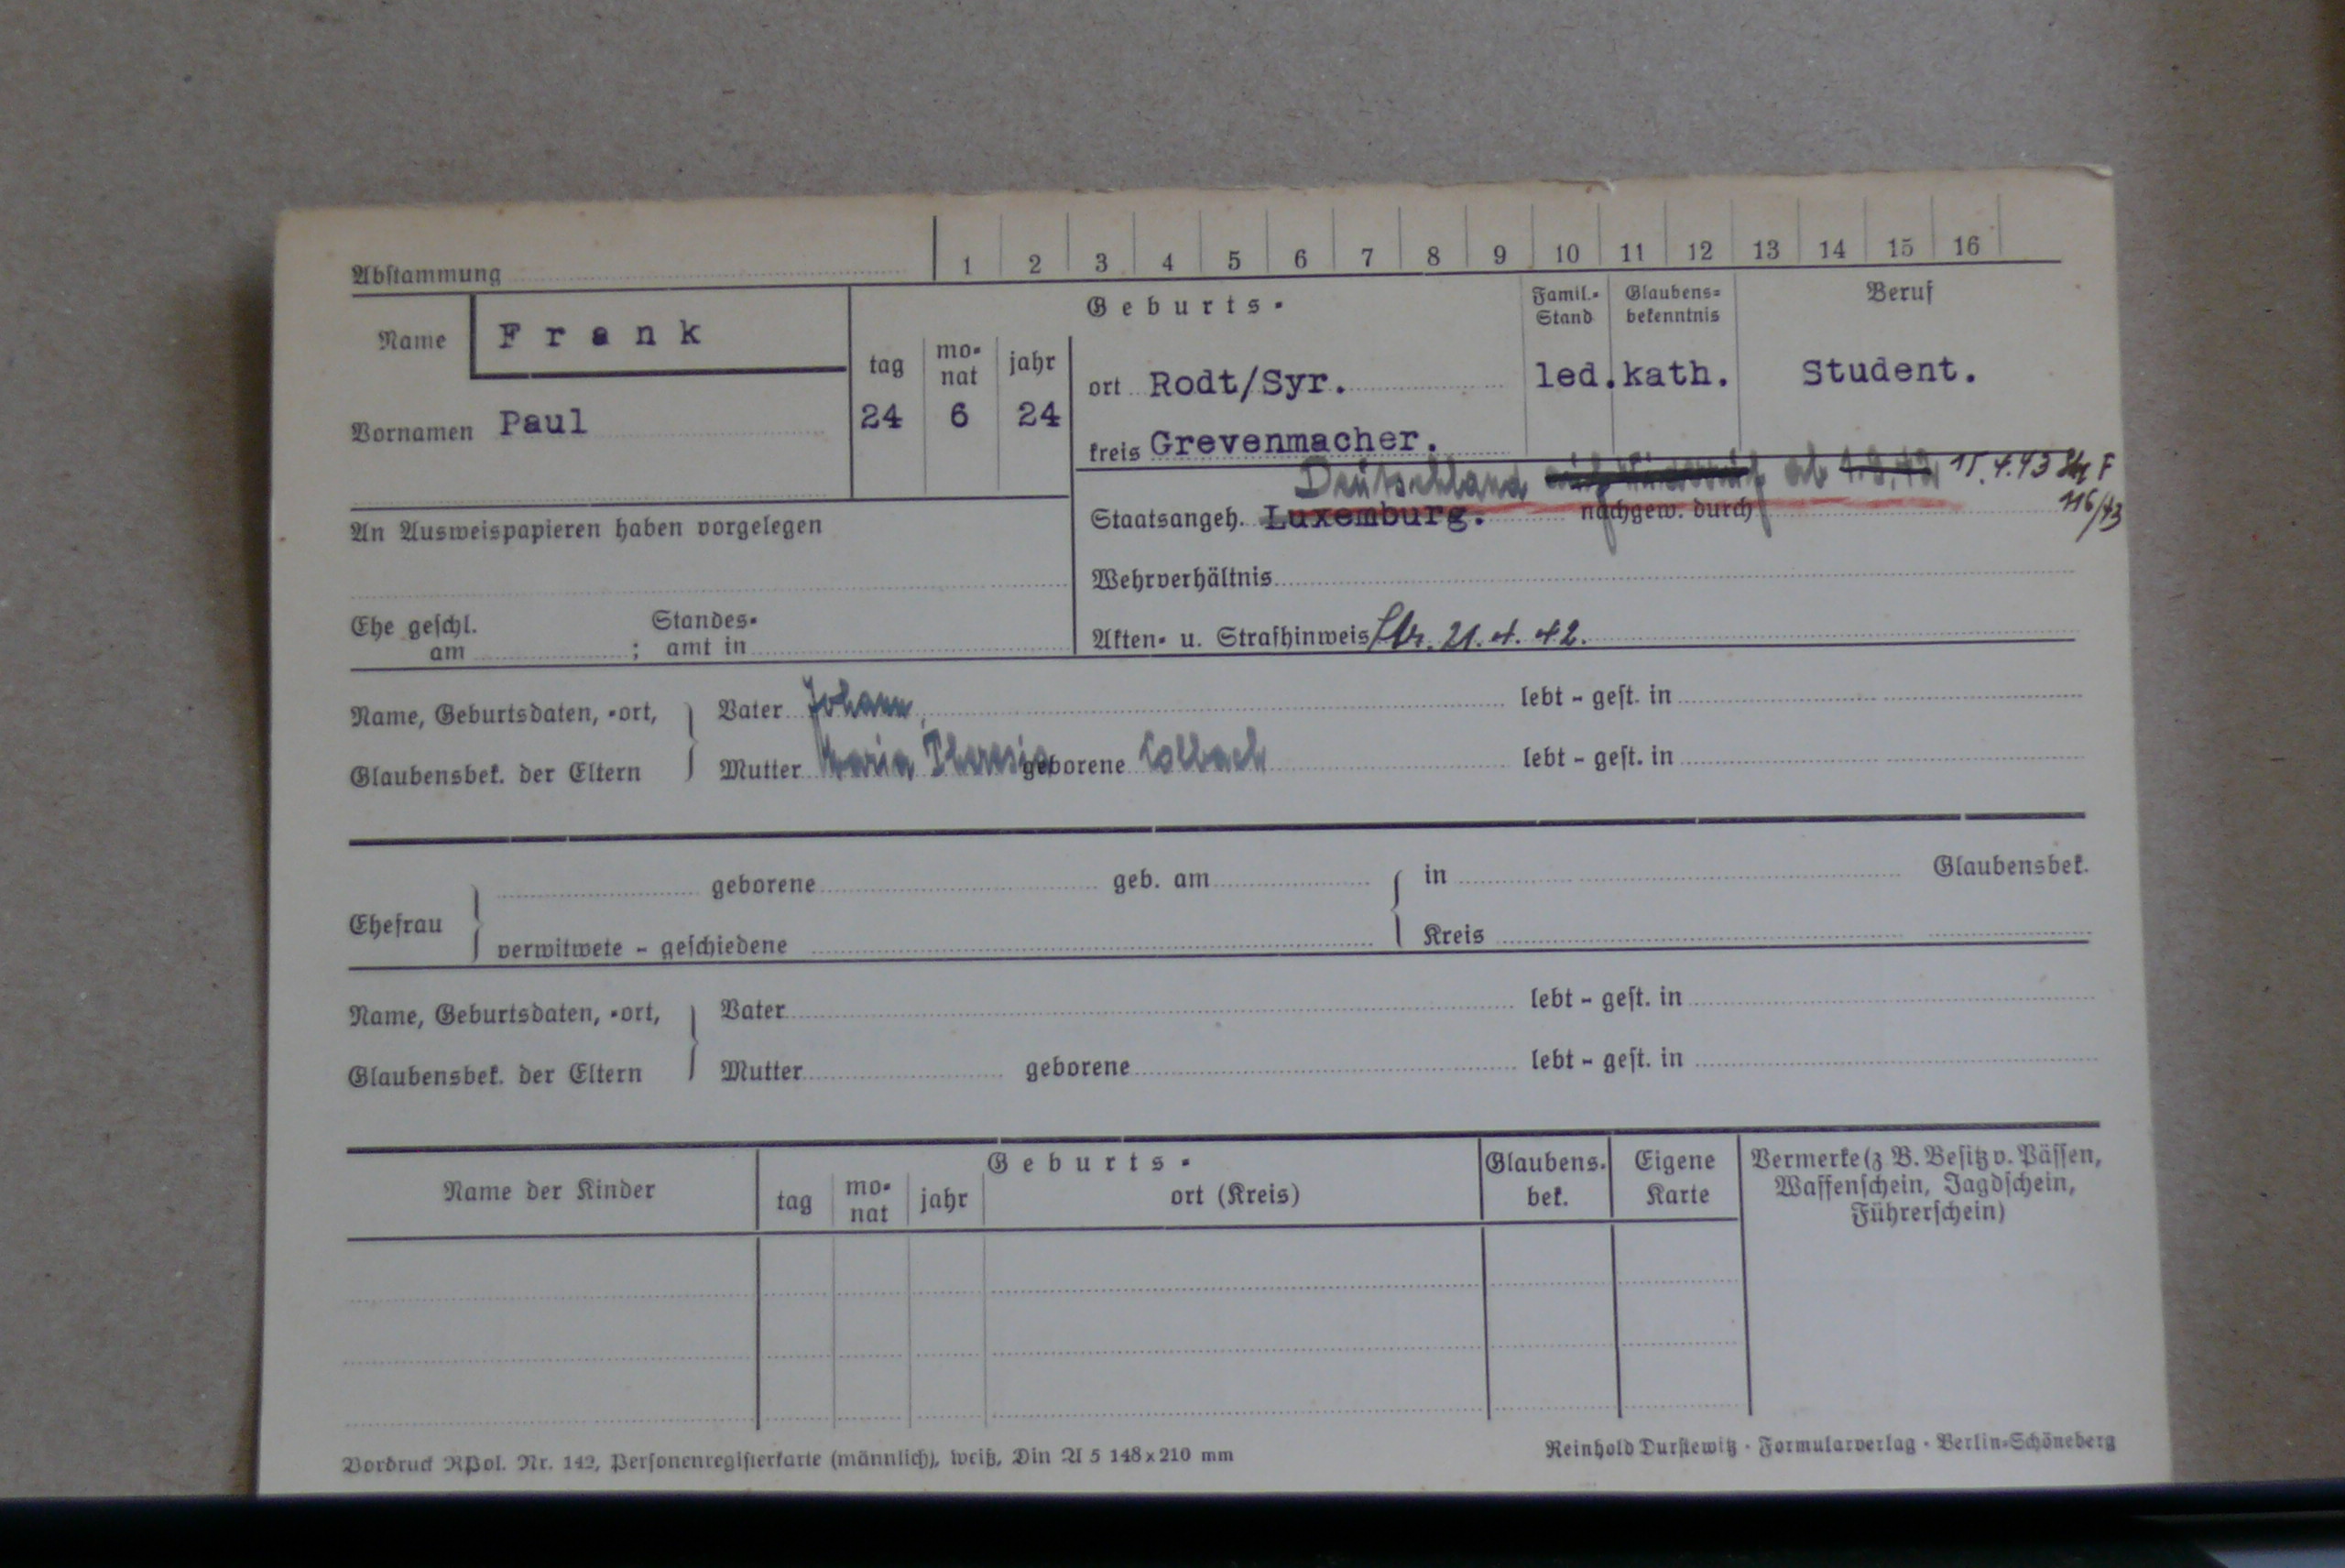 Abstammung 1 2 3 4 5 6 7 8 9 10 11 12 13 14 15 16
Name Frank
Geburts-
Famil.-Stand
Glaubens-bekenntnis
Beruf
tag monat jahr
ort Rodt/Syr. led. kath. Student.
Vornamen Paul 24 6 24
kreis Grevenmacher.
Deutschland ab 15.4.43 F
116/43
Staatsangeh. Luxemburg. nachgew. durch
An Ausweispapieren haben vorgelegen
Wehrverhältnis
Ehe geschl. am ; Standesamt in
Akten- u. Strafhinweis 21.4.42.
Name, Geburtsdaten, -ort, Vater Johann, lebt - gest. in
Glaubensbek. der Eltern Mutter Maria Theresia geborene Colbach lebt - gest. in
geborene geb. am in Glaubensbek.
Ehefrau
verwitwete - geschiedene Kreis
Name, Geburtsdaten, -ort, Vater lebt - gest. in
Glaubensbek. der Eltern Mutter geborene lebt - gest. in
Name der Kinder
Geburts-
tag monat jahr ort (Kreis)
Glaubens-bek.
Eigene Karte
Vermerke (z B. Besitz v. Pässen,
Waffenschein, Jagdschein,
Führerschein)
Vordruck RPol. Nr. 142, Personenregisterkarte (männlich), weiß, Din A 5 148x210 mm
Reinhold Durstewitz · Formularverlag · Berlin-Schöneberg